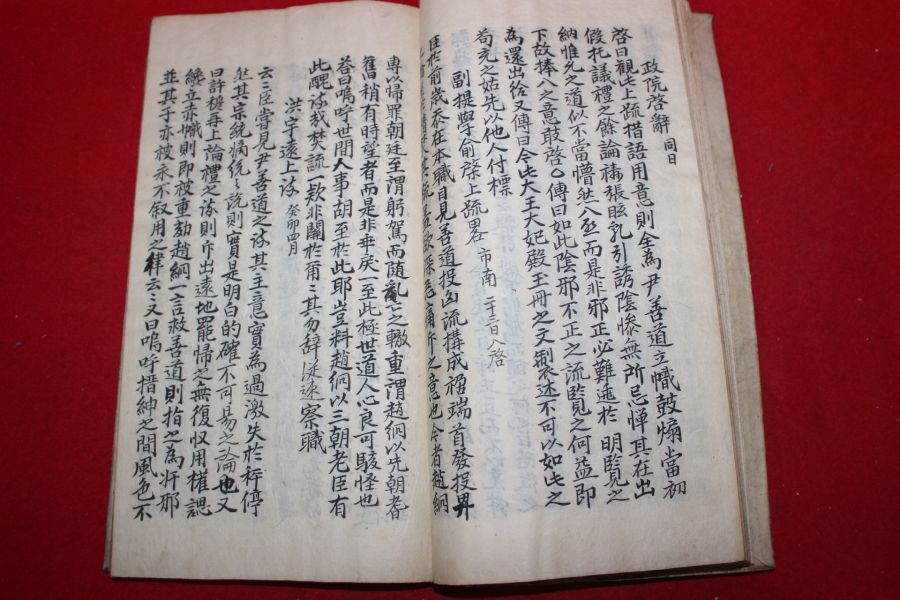 政院啓辭 同日
啓曰觀此上疏措語用意則全爲尹善道立幟鼓煽當初
假托議禮之餘論禍張眩乱引誘陰慘無所忌憚其在出
納惟允之道似不當懵然入啓而是非邪正必難逃於 明監見之
下故捧入之意敢啓○傳曰如此陰邪不正之流覽之何益即
爲還出給又傳曰今此大王大妃殿玉冊之文製述不可以如此之
苟充之姑先以他人付標
副提學俞棨上疏畧 市南 二十三日入啓
臣於前歲忝在本職目見善道投凶流構成禍端首發投畀
專以歸罪朝廷至謂躬駕而隨亂亡之轍重謂趙絅以先朝耆
舊稍有時望者而是非乖戾一至此極世道人心良可駭怪也
答曰嗚呼世間人事胡至於此耶豈料趙絅以三朝老臣有
此醜疏我焚疏一款非關於爾爾其勿辭從速察職
洪宇遠上疏 癸卯四月
云云臣嘗見尹善道之疏其主意實爲過激失於秤停
然其宗統嫡統之說則實是明白的確不可易之論也又
曰許穆再上論禮之疏則斥出遠地罷歸之無復収用權諰
纔立赤幟則即被重劾趙絅一言救善道則指之爲奸邪
並其子亦被永不叙用之律云云又曰嗚呼搢紳之間風色不